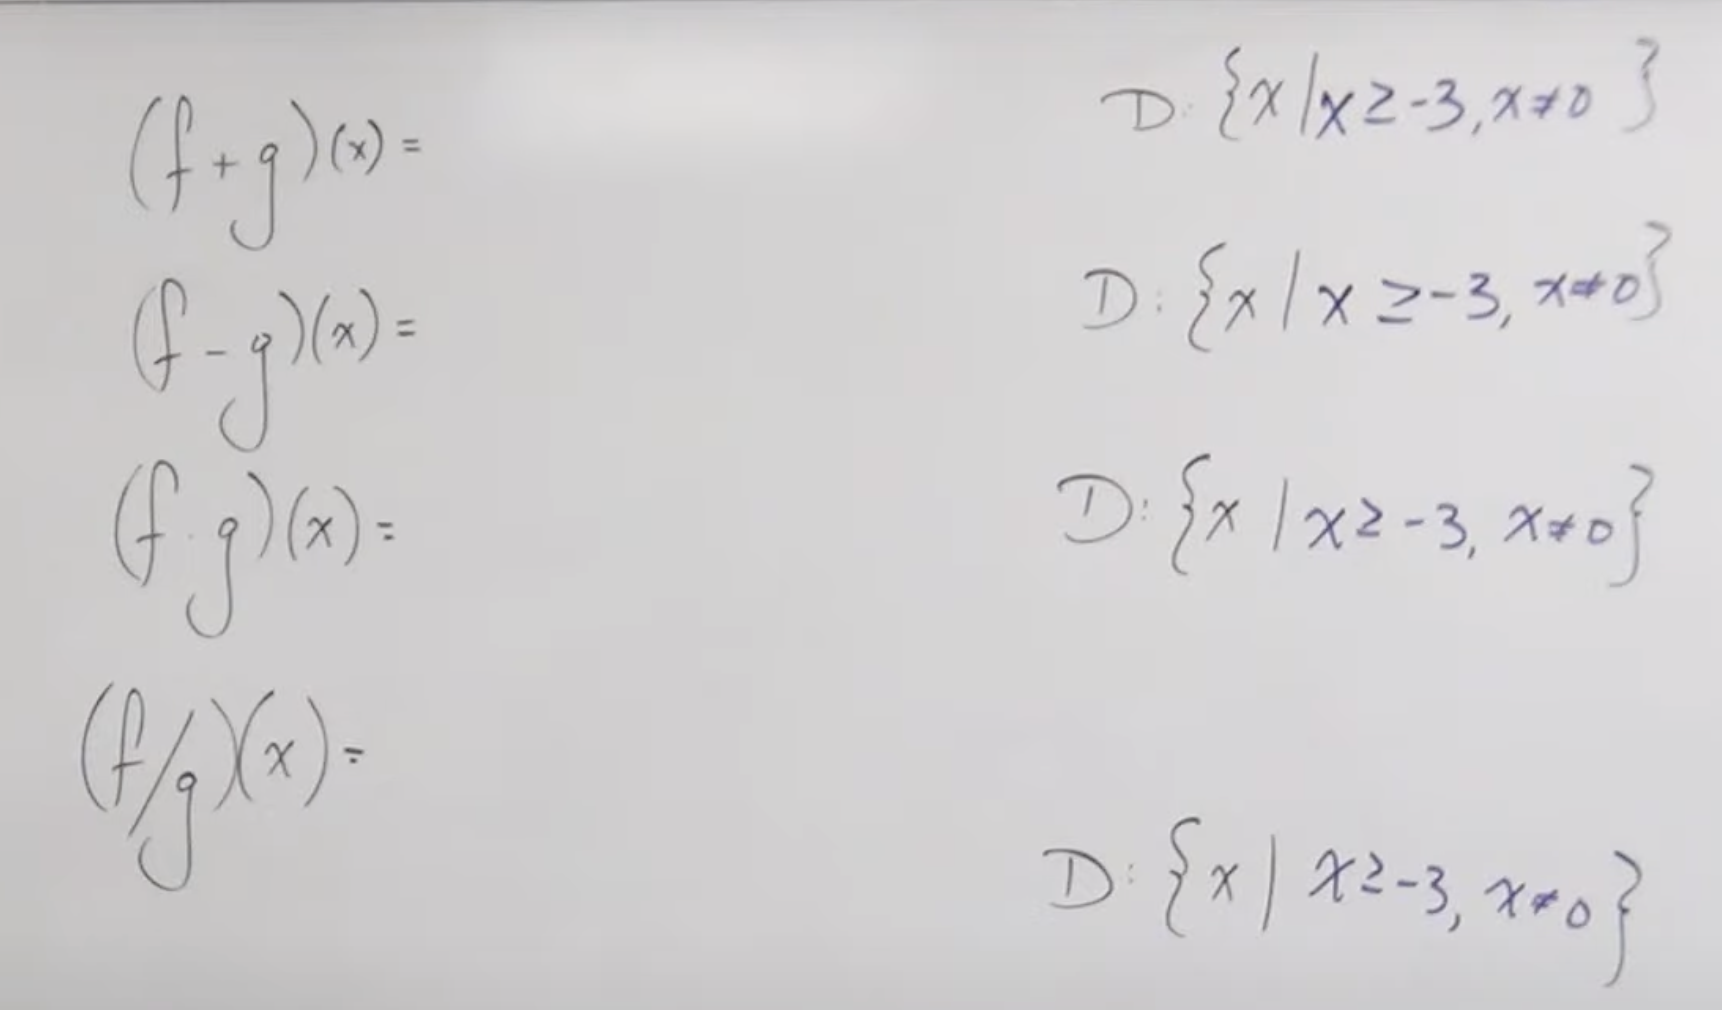 (f+g)(x)= D: {x|x≥-3, x≠0}
(f-g)(x)= D: {x|x≥-3, x≠0}
(f·g)(x)= D: {x|x≥-3, x≠0}
(f/g)(x)=
D: {x|x≥-3, x≠0}